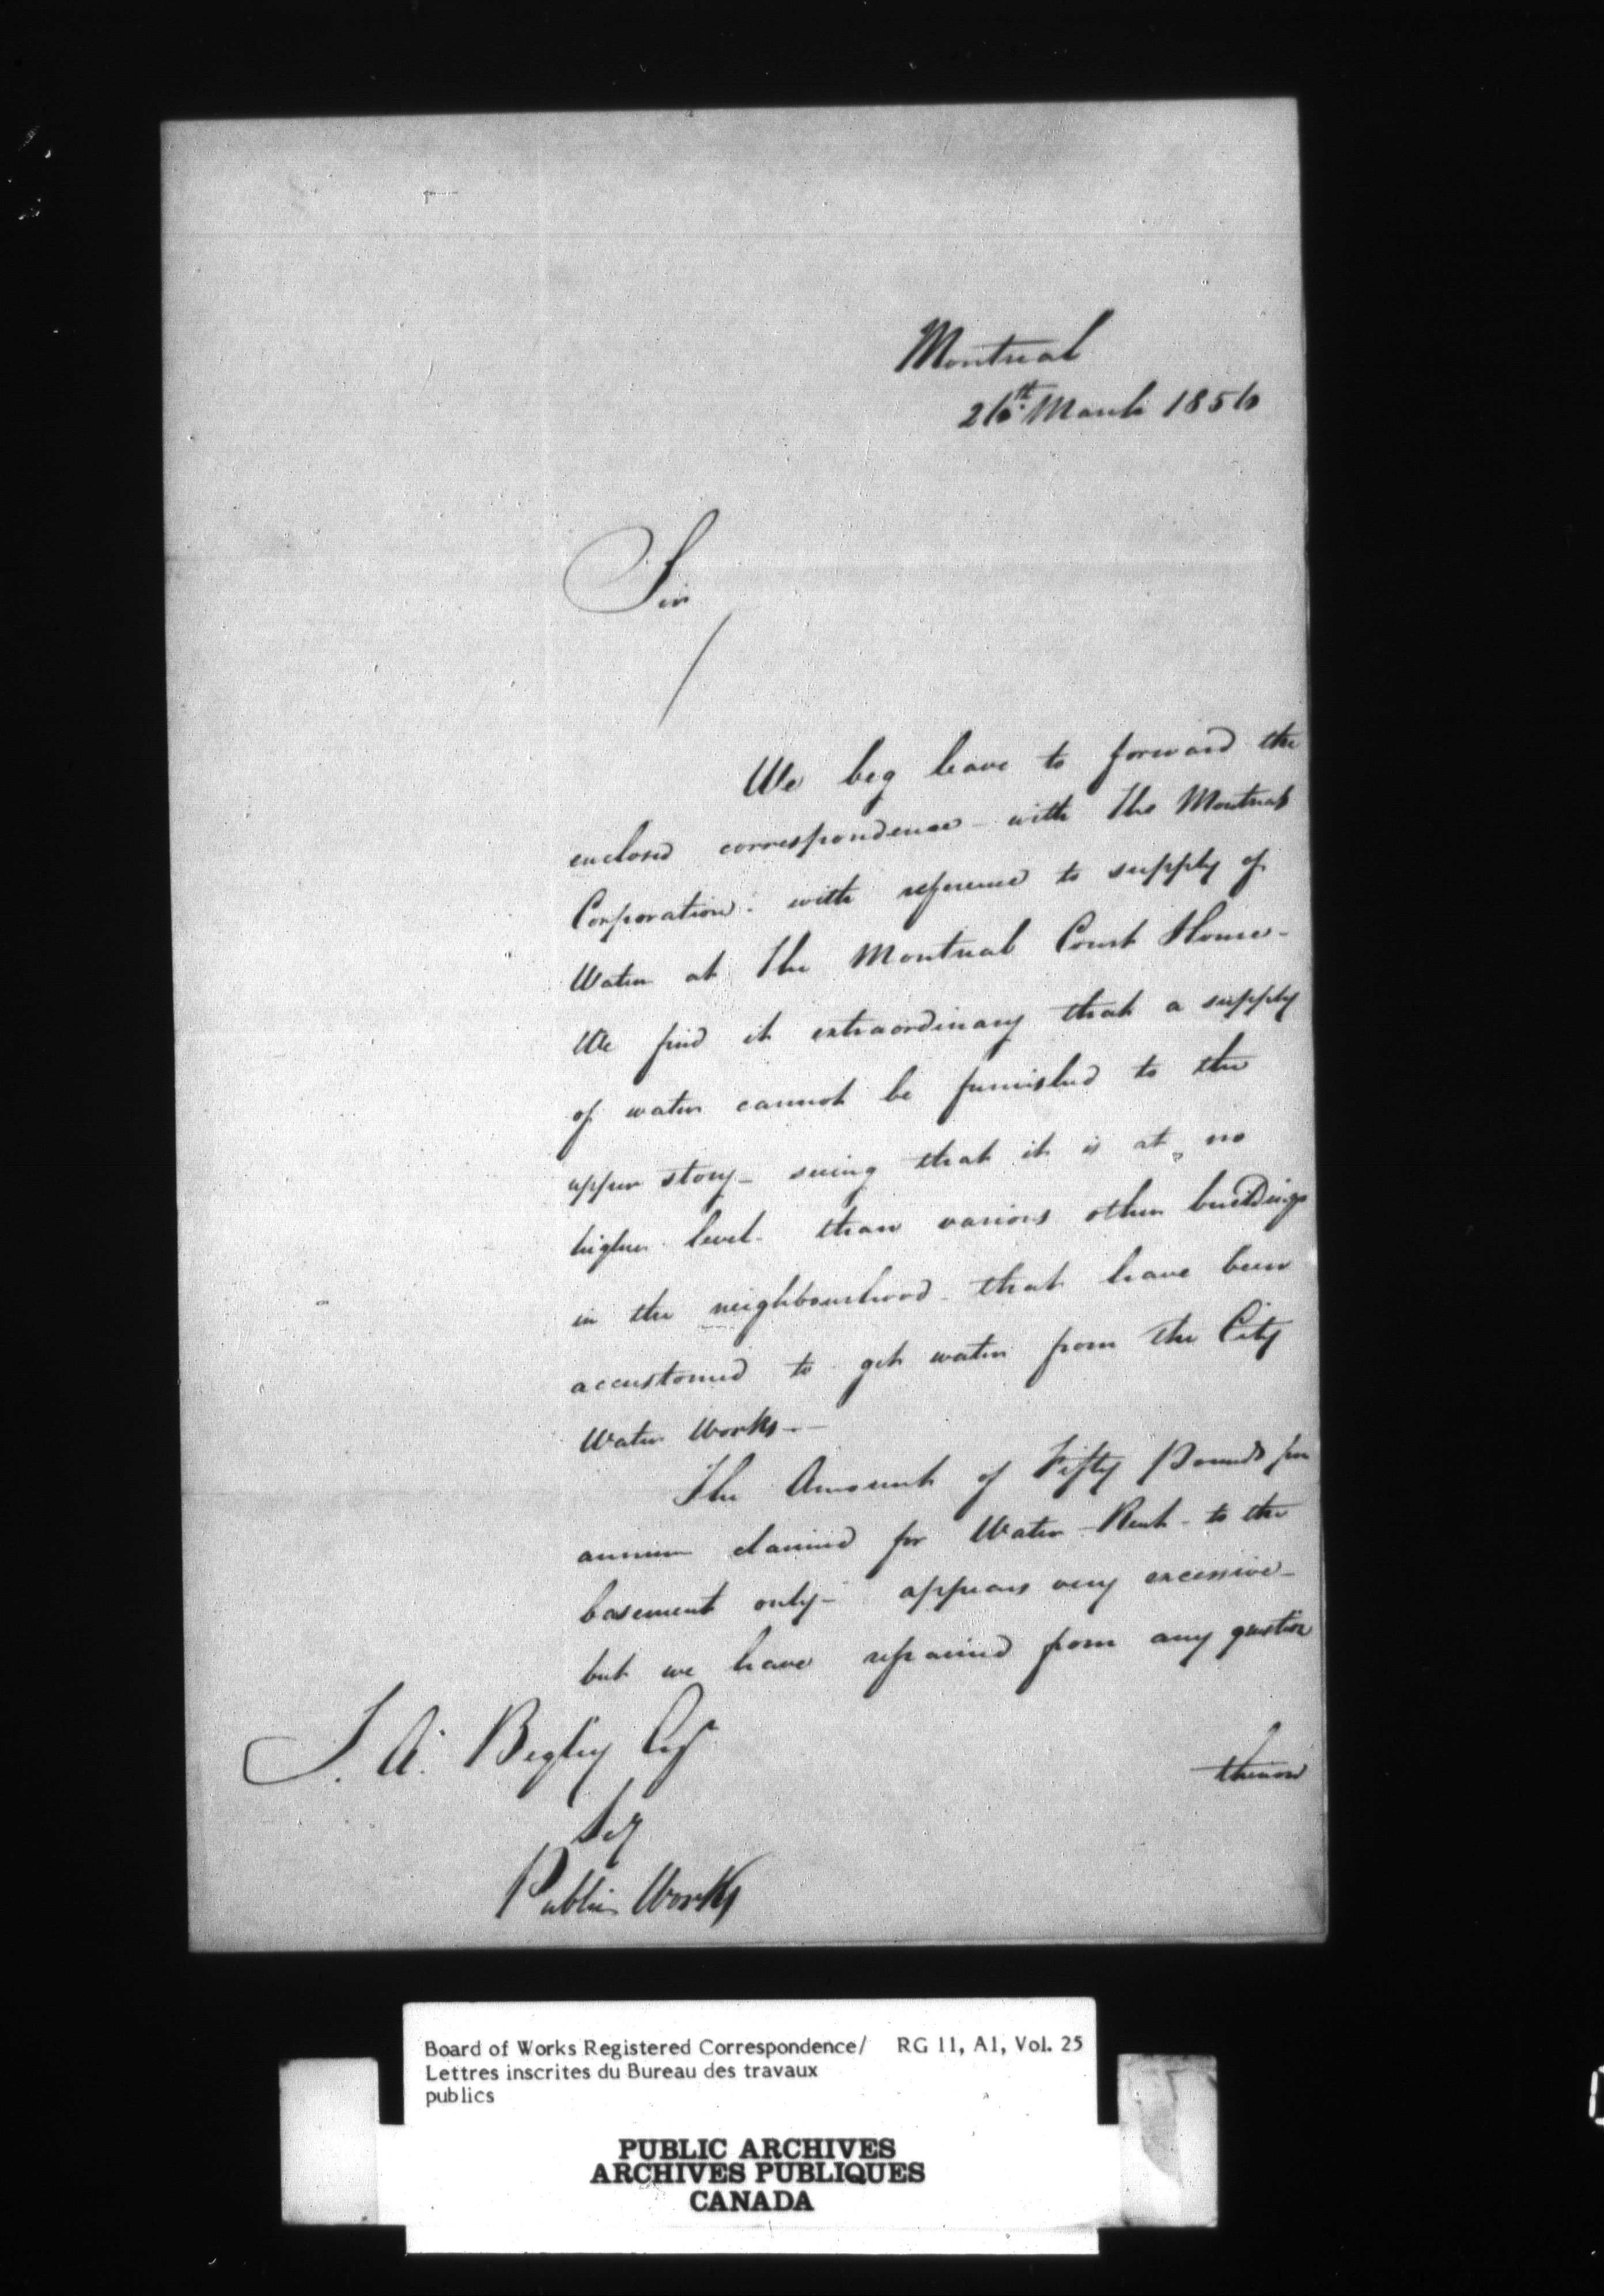 Montreal
26th March 1856
Sir
We beg leave to forward the
enclosed correspondence - with the Montreal
Corporation - with reference to supply of
Water at the Montreal Court House -
We find it extraordinary that a supply
of water cannot be furnished to the
upper story - seeing that it is at no
higher level - than various other buildings
in the neighbourhood - that have been
accustomed to get water from the City
Water Works - -
The Amount of Fifty Pounds per
annum claimed for Water - Rent - to the
basement only - appears very excessive -
but we have refrained from any question
thereon
T. A. Begley Esqr
Secy
Public Works
Board of Works Registered Correspondence/ RG 11, A1, Vol. 25
Lettres inscrites du Bureau des travaux
publics
PUBLIC ARCHIVES
ARCHIVES PUBLIQUES
CANADA